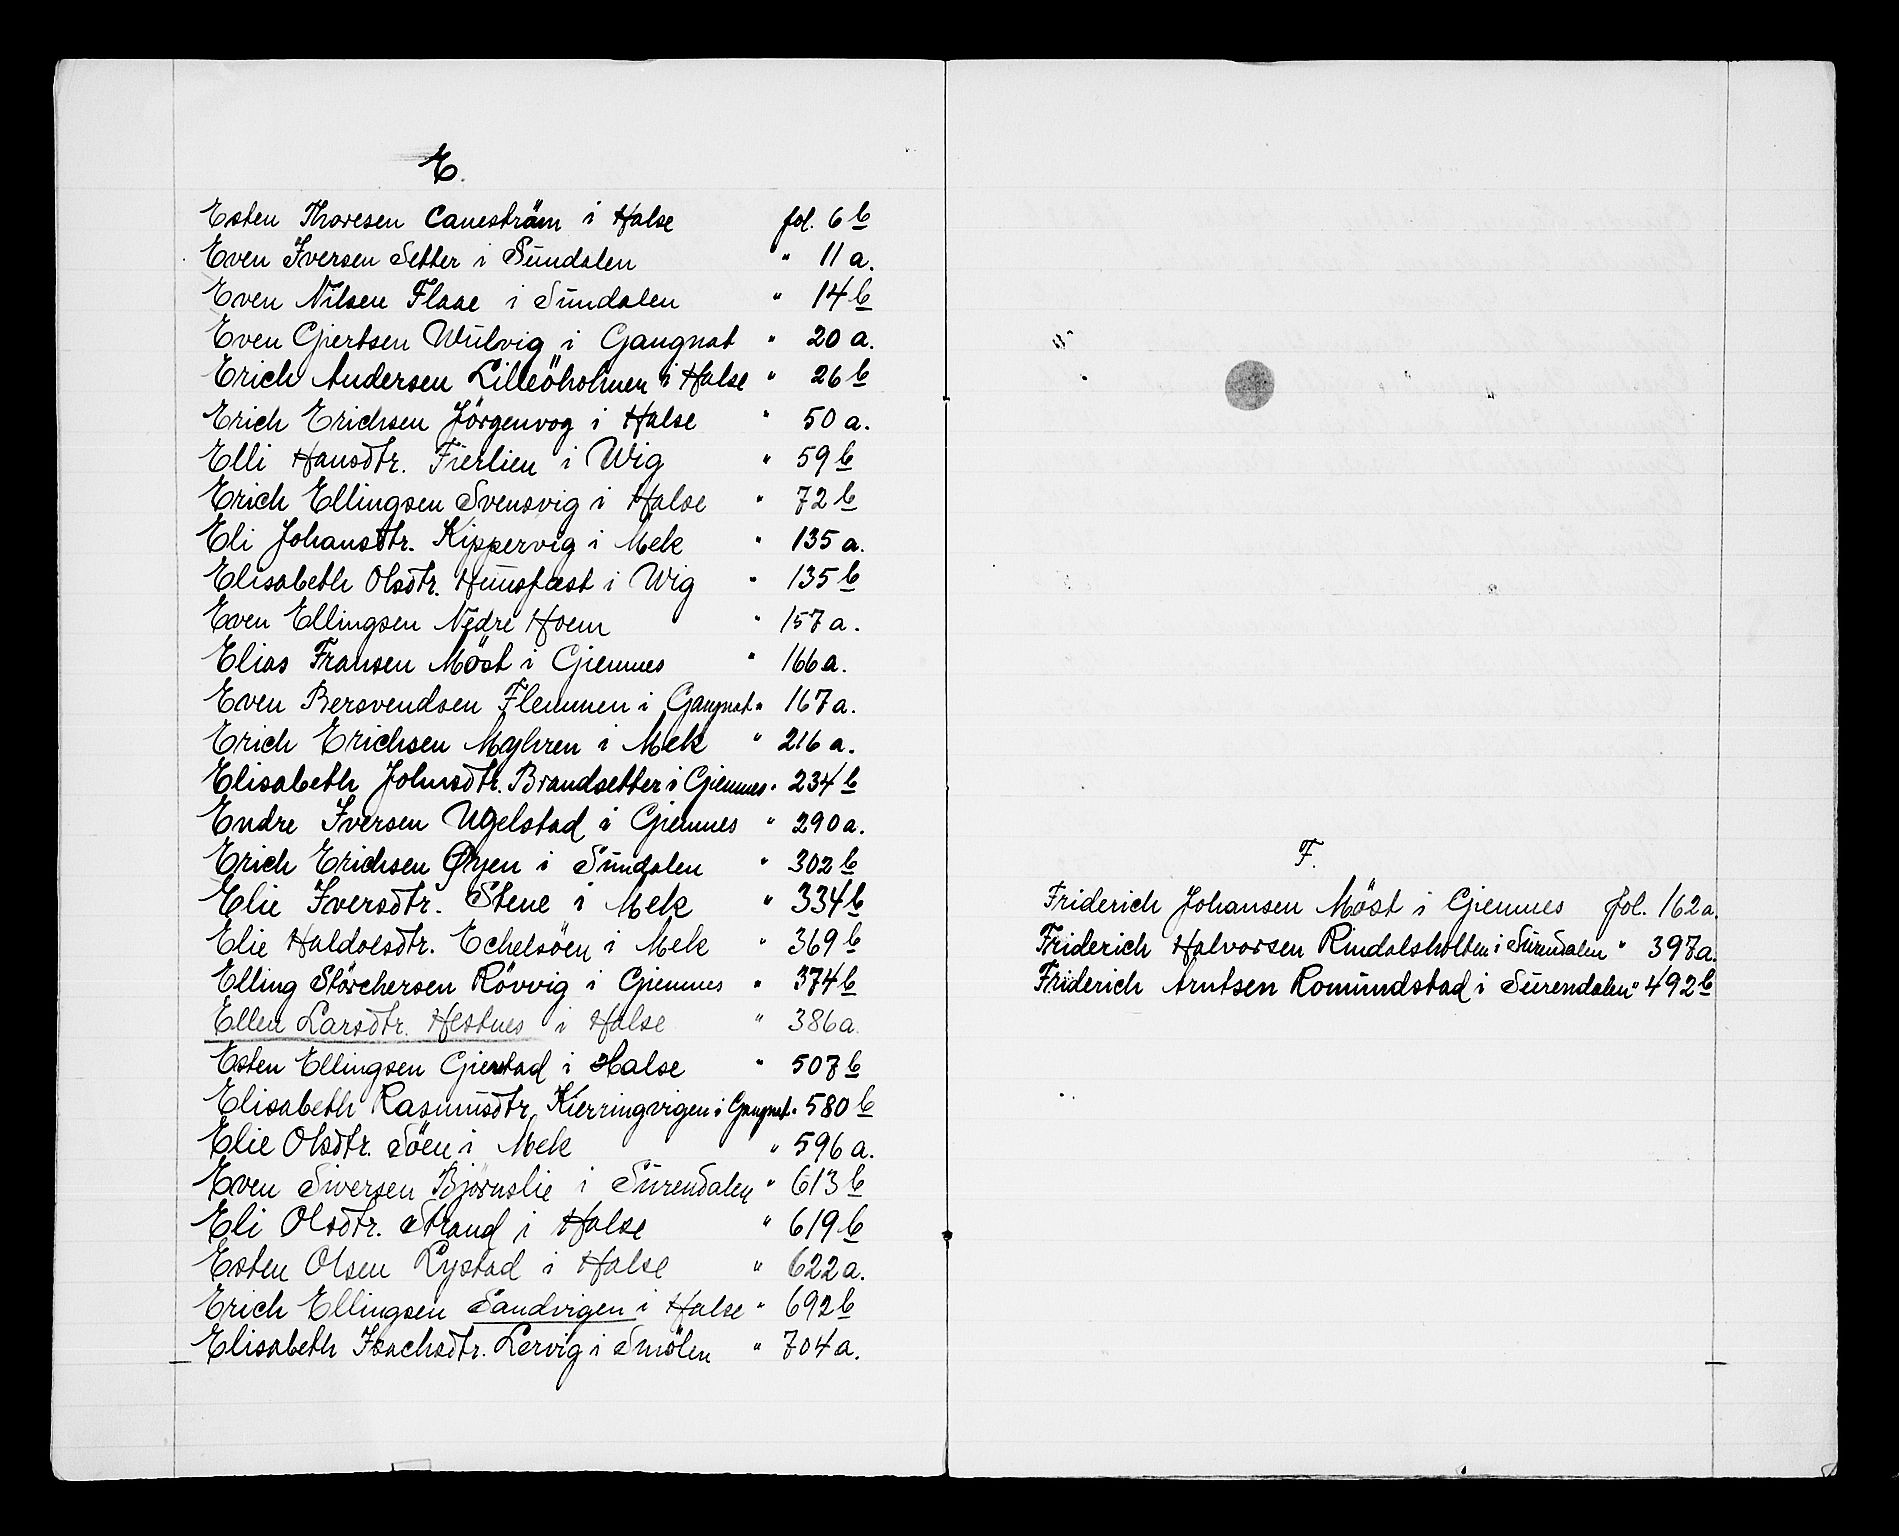 E.
Esten Thoresen Canesträm i Halse fol. 6 b
Even Iversen Setter i Sundalen " 11 a.
Even Nilsen Flaae i Sundalen " 14 b
Even Giertsen Wulvig i Gangnat " 20 a.
Erich Andersen Lilleöholmen i Halse " 26 b
Erich Erichsen Jörgenvog i Halse " 50 a.
Elli Hansdtr. Fierlien i Wig " 59 b
Erich Ellingsen Svensvig i Halse " 72 b
Eli Johansdtr. Kippervig i Mek " 135 a.
Elisabeth Olsdtr. Hunsfæst i Wig " 135 b
Even Ellingsen Nedre Hoem " 157 a.
Elias Fransen Möst i Giemnes " 166 a.
Even Bersvendsen Flemmen i Gangnat " 167 a.
Erich Erichsen Myhren i Mek " 216 a.
Elisabeth Johnsdtr. Brandsetter i Giemnes " 234 b
Endre Iversen Ugelstad i Giemnes " 290 a.
Erich Erichsen Öyen i Sundalen " 302 b
Elie Iversdtr. Stene i Mek " 334 b
Elie Haldoesdtr. Echelsöen i Mek " 369 b
Elling Störchersen Rövvig i Giemnes " 374 b
Ellen Larsdtr. Hestnes i Halse " 386 a.
Esten Ellingsen Gierstad i Halse " 507 b
Elisabeth Rasmusdtr. Kierringvigen i Gangnat " 580 b
Elie Olsdtr. Söen i Mek " 596 a.
Even Siversen Björnslie i Surendalen " 613 b
Eli Olsdtr. Strand i Halse " 619 b
Esten Olsen Lystad i Halse " 622 a.
Erich Ellingsen Sandvigen i Halse " 692 b
Elisabeth Isachsdtr. Lervig i Smölen " 704 a.
F.
Friderich Johansen Möst i Giemnes fol. 162 a.
Friderich Halvorsen Rindalsholten i Surendalen " 397 a.
Friderich Arntsen Romundstad i Surendalen " 492 b